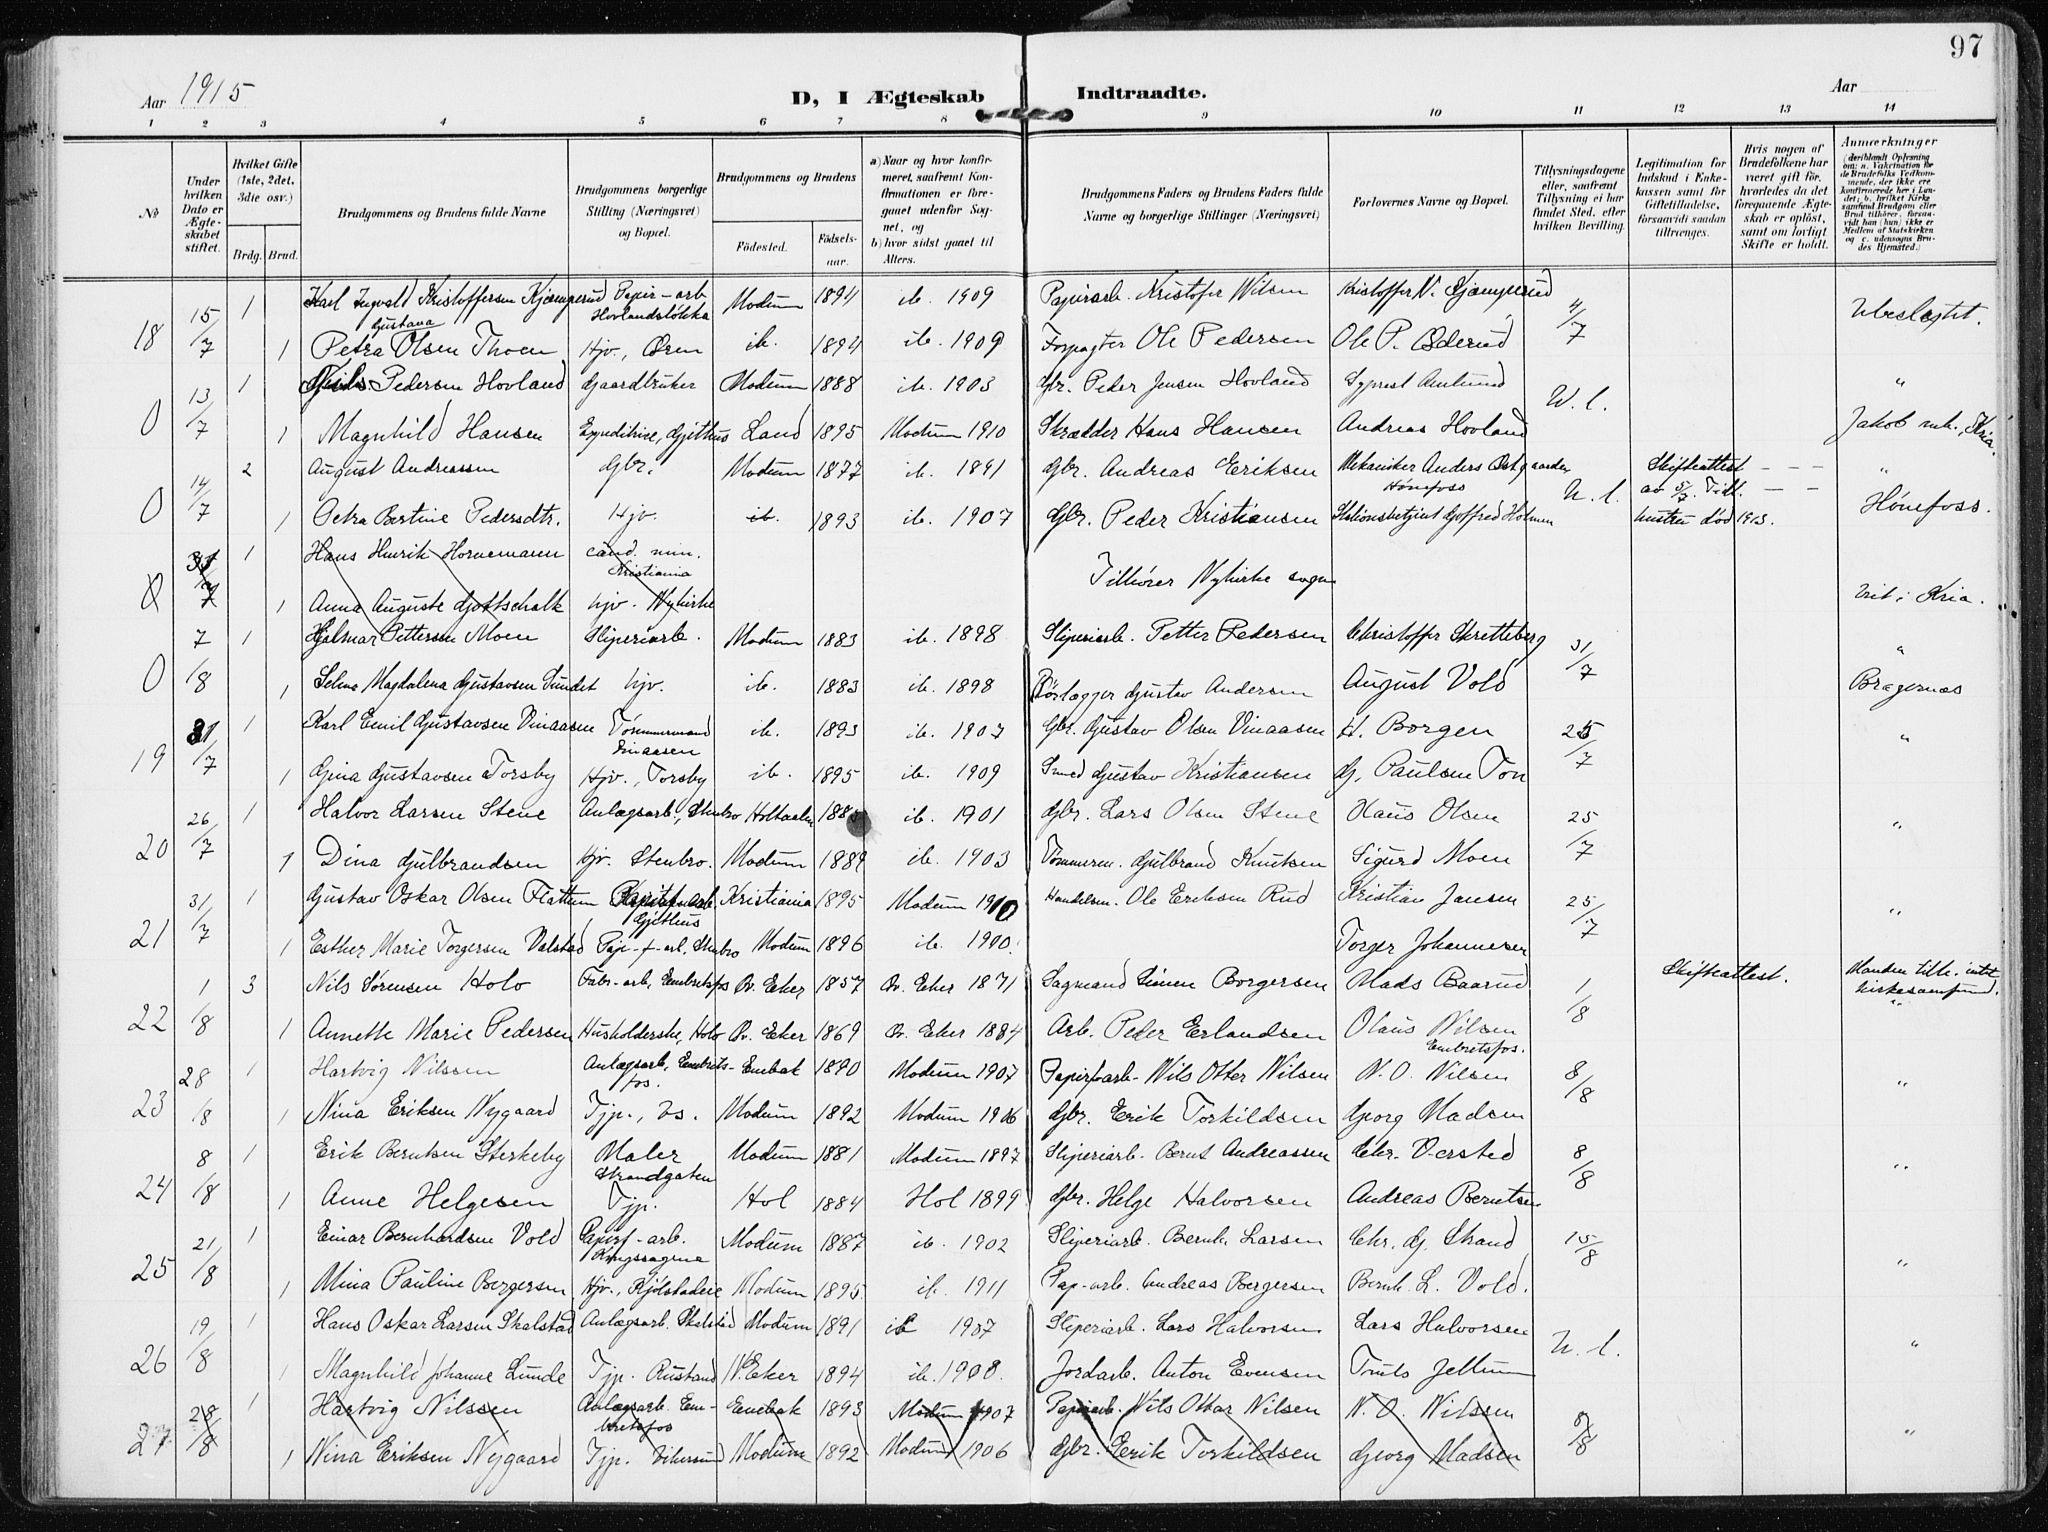 97
Aar 1915
D, I Ægteskab Indtraadte.
Aar
1 2 3 4 5 6 7 8 9 10 11 12 13 14
No
Under hvilken Dato er Ægteskabet stiftet.
Hvilket Gifte (1ste, 2det, 3die osv.)
Brdg. Brud.
Brudgommens og Brudens fulde Navne
Brudgommens borgerlige Stilling (Næringsvei) og Bopæl.
Brudgommens og Brudens
Fødested.
Fødsels-aar.
a) Naar og hvor konfirmeret, saafremt Konfirmationen er foregaaet udenfor Sognet, og
b) hvor sidst gaaet til Alters.
Brudgommens Faders og Brudens Faders fulde Navne og borgerlige Stillinger (Næringsvei)
Forlovernes Navne og Bopæl.
Tillysningsdagene eller, saafremt Tillysning ei har fundet Sted, efter hvilken Bevilling.
Legitimation for Indskud i Enkekassen samt for Giftetilladelse, forsaavidt saadan tiltrænges.
Hvis nogen af Brudefolkene har været gift før, hvorledes da det foregaaende Ægteskab er opløst, samt om lovligt Skifte er holdt.
Anmærkninger
(deriblandt Oplysning om: a. Vakcination for de Brudefolks Vedkommende, der ikke ere konfirmerede her i Landet; b. hvilket Kirkesamfund Brudgom eller Brud tilhører, forsaavidt han (hun) ikke er Medlem af Statskirken og c. udensogns Brudes Hjemsted.)
18 15/7 1 Karl Ingvald Kristoffersen Kjæmperud Papir-arb Hovlandsløkka Modum 1894 ib. 1909 Papirarb. Kristofer Nilsen Kristoffer N. Kjæmperud 4/7 Ubeslegtet.
1 Petra Gustava Olsen Thoen Hjv., Øren ib. 1894 ib. 1909 Forpagter Ole Pedersen Ole P. Øderud
0 13/7 1 Nils Pedersen Hovland Gaardbruker Modum 1888 ib. 1903 Gbr. Peder Jensen Hovland Syprest Amlund U. l. "
1 Magnhild Hansen Expeditrice, Gjithus Land 1895 Modum 1910 Skrædder Hans Hansen Andreas Hovland Jakob mk., Kria.
0 14/7 2 August Andreassen Gbr. Modum 1877 ib. 1891 Gbr. Andreas Eriksen Mekaniker Anders Østgaarden Hønefoss U. l. Skifteattest av 5/7. Tidl. hustru død 1913. "
1 Petra Bertine Pedersdtr. Hjv. ib. 1893 ib. 1907 Gbr. Peder Kristiansen Stationsbetjent Gotfred Holmen Hønefoss.
0 31/7 1 Hans Henrik Hornemann cand. min. Kristiania Tilhører Nykirke sogn
1 Anna Auguste Gottschalk hjv. Nykirke Viet i Kria.
0 7/8 1 Hjalmar Pettersen Moen Sliperiarb. Modum 1883 ib. 1898 Sliperiarb. Petter Pedersen Christoffer Skretteberg 31/7 "
1 Selma Magdalena Gustavsen Sundet hjv. ib. 1883 ib. 1898 Rørlægger Gustav Andersen August Vold Bragernæs
19 31/7 1 Karl Emil Gustavsen Vinaasen Tømmermand Vinaasen ib. 1893 ib. 1907 Gbr. Gustav Olsen Vinaasen H. Borgen 25/7 "
1 Gina Gustavsen Torsby Hjv., Torsby ib. 1895 ib. 1909 Smed Gustav Kristiansen G. Paulsen Ton
20 26/7 1 Halvor Larsen Stene Anlægsarb., Stenbro Holtaalen 1885 ib. 1901 Gbr. Lars Olsen Stene Hans Olsen 25/7 "
1 Dina Gulbrandsen Hjv. Stenbro. Modum 1889 ib. 1903 Tømmerm. Gulbrand Knutsen Sigurd Moen
21 31/7 1 Gustav Oskar Olsen Flattum Papirf-arb. Gjithus Kristiania 1895 Modum 1910 Handelsm. Ole Eriksen Rud Kristian Jansen 25/7 "
1 Esther Marie Torgersen Valstad Pap-f-arb. Stenbro Modum 1896 ib. 1910. Torger Johannesen
22 1/8 3 Nils Sørensen Holo Fabr-arb, Embretsfos Øv. Eker 1857 Øv. Eker 1871 Sagmand Simen Borgersen Mads Baarud 1/8 Skifteattest. Manden tilh. intet kirkesamfund. "
1 Annette Marie Pedersen Husholderske, Holo Øv. Eker 1869 Øv. Eker 1884 Arb. Peder Erlandsen Olaus Nilsen Embretsfos.
23 28/8 1 Hartvig Nilssen Anlægsarb, Embretsfos. Enebak 1890 Modum 1907 Papirfarb- Nils Otter Nilsen N. O. Nilsen 8/8 "
1 Nina Eriksen Nygaard Tjp., Vs. Modum 1892 Modum 1906 Gbr. Erik Torkildsen Georg Madsen
24 8/8 1 Erik Berntsen Sterkeby Maler Strandgaten Modum 1881 Modum 1897 Sliperiarb. Bernt Andreassen Chr. Versted 8/8 "
1 Anne Helgesen Tjp. Hol 1884 Hol 1899 Gbr. Helge Halvorsen Andreas Berntsen
25 21/8 1 Einar Bernhardsen Vold Papirf-arb. Kongssagene Modum 1887 ib. 1902 Sliperiarb. Bernh. Larsen Chr. G. Strand 15/8 "
1 Mina Pauline Bergersen Hjv., Kjølstadeie Modum 1895 ib. 1911 Pap-arb. Andreas Bergersen Bernh. L. Vold.
26 19/8 1 Hans Oskar Larsen Skalstad Anlægsarb. Skalstad Modum 1891 ib 1907 Sliperiarb. Lars Halvorsen Lars Halvorsen U. l. "
1 Magnhild Johanne Lunde Tjp. Rustand N. Eker 1894 ib. 1908. Jordarb. Anton Evensen Truls Jellum
27 28/8 1 Hartvig Nilssen Anlægsarb. Embretsfos Enebak 1893 Modum 1907 Papirarb. Nils Ottar Nilsen N. O. Nilssen 8/8 "
1 Nina Eriksen Nygaard Tjp. Vikersund Modum 1892 Modum 1906 Gbr. Erik Torkildsen Georg Madsen